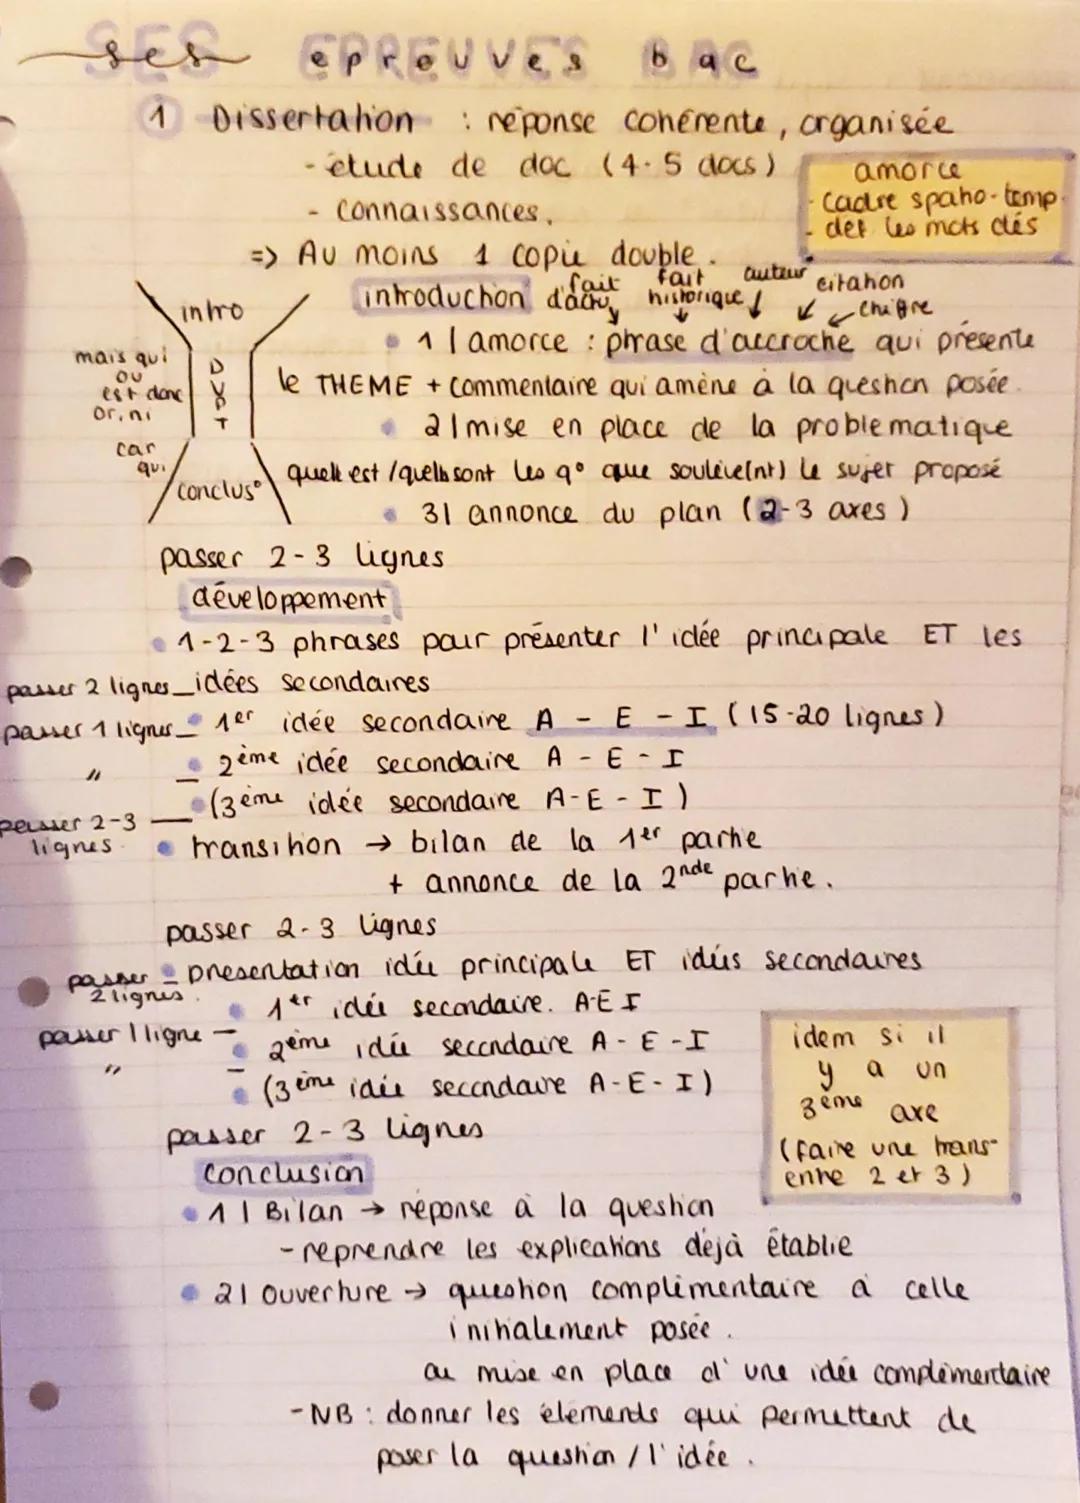 SES EPREUVES BAC
ses epreuves bac
1 Dissertation : réponse cohérente, organisée
- étude de doc (4-5 docs)
- connaissances.
=> Au moins 1 copie double.
amorce
- cadre spatio-temp.
- def les mots clés
introduction
fait d'actu, fait historique, auteur citation chiffre
• 1| amorce : phrase d'accroche qui présente
le THEME + commentaire qui amène à la question posée.
• 2| mise en place de la problematique
quelle est / quels sont les q° que soulève(nt) le sujet proposé
• 3| annonce du plan (2-3 axes)
intro
DVPT
conclus°
mais qui
ou
est donc
or, ni
car
qui
passer 2-3 lignes
développement
• 1-2-3 phrases pour présenter l'idée principale ET les
passer 2 lignes_ idées secondaires
passer 1 lignes_ • 1er idée secondaire A - E - I (15-20 lignes)
" _ • 2ème idée secondaire A - E - I
• (3ème idée secondaire A-E-I)
passer 2-3 lignes
• transition → bilan de la 1er partie
+ annonce de la 2nde partie.
passer 2-3 lignes
passer 2 lignes. - • presentation idée principale ET idées secondaires
• 1er idée secondaire. A-E I
passer 1 ligne - • 2ème idée secondaire A - E - I
" - • (3ème idée secondaire A-E-I)
idem si il
y a un
3ème axe
(faire une trans°
entre 2 et 3)
passer 2-3 lignes
conclusion
• 1| Bilan → réponse à la question
- reprendre les explications déjà établie
• 2| Ouverture → question complémentaire à celle
initialement posée.
ou mise en place d'une idée complémentaire
- NB : donner les éléments qui permettent de
poser la question / l'idée.